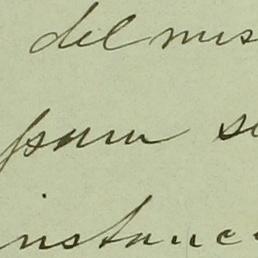 del mis
psam se
instanc